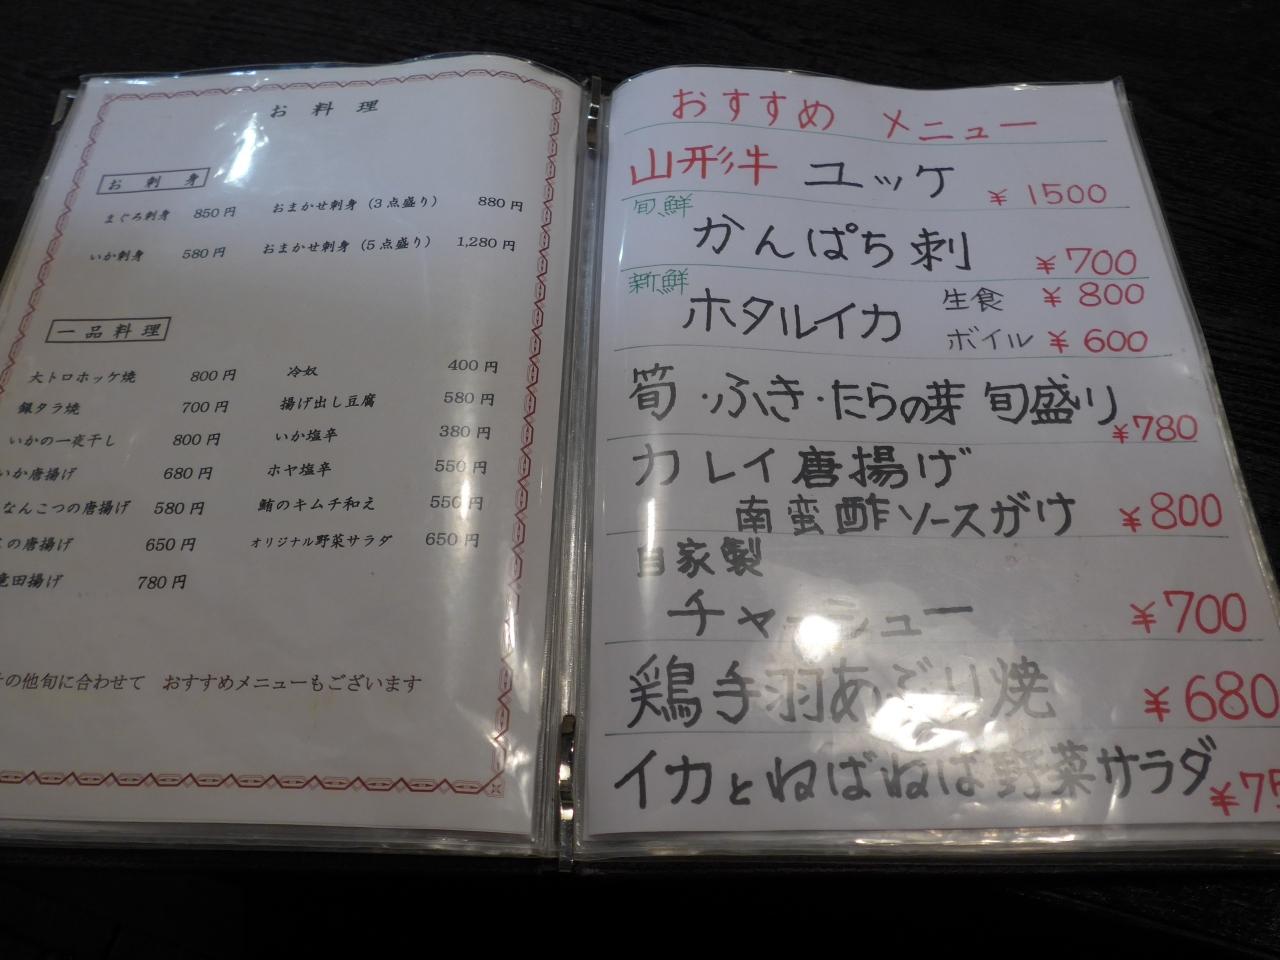 お料理
お刺身
まぐろ刺身 850円 おまかせ刺身（3点盛り） 880円
いか刺身 580円 おまかせ刺身（5点盛り） 1,280円
一品料理
大トロホッケ焼 800円 冷奴 400円
銀タラ焼 700円 揚げ出し豆腐 580円
いかの一夜干し 800円 いか塩辛 380円
いか唐揚げ 680円 ホヤ塩辛 550円
なんこつの唐揚げ 580円 鮪のキムチ和え 550円
の唐揚げ 650円 オリジナル野菜サラダ 650円
竜田揚げ 780円
の他旬に合わせて おすすめメニューもございます
おすすめ メニュー
山形牛 ユッケ ¥1500
旬鮮
かんぱち刺 ¥700
新鮮
ホタルイカ 生食 ¥800
ボイル ¥600
筍・ふき・たらの芽 旬盛り ¥780
カレイ唐揚げ
南蛮酢ソースがけ ¥800
自家製
チャーシュー ¥700
鶏手羽あぶり焼 ¥680
イカとねばねば野菜サラダ ¥75